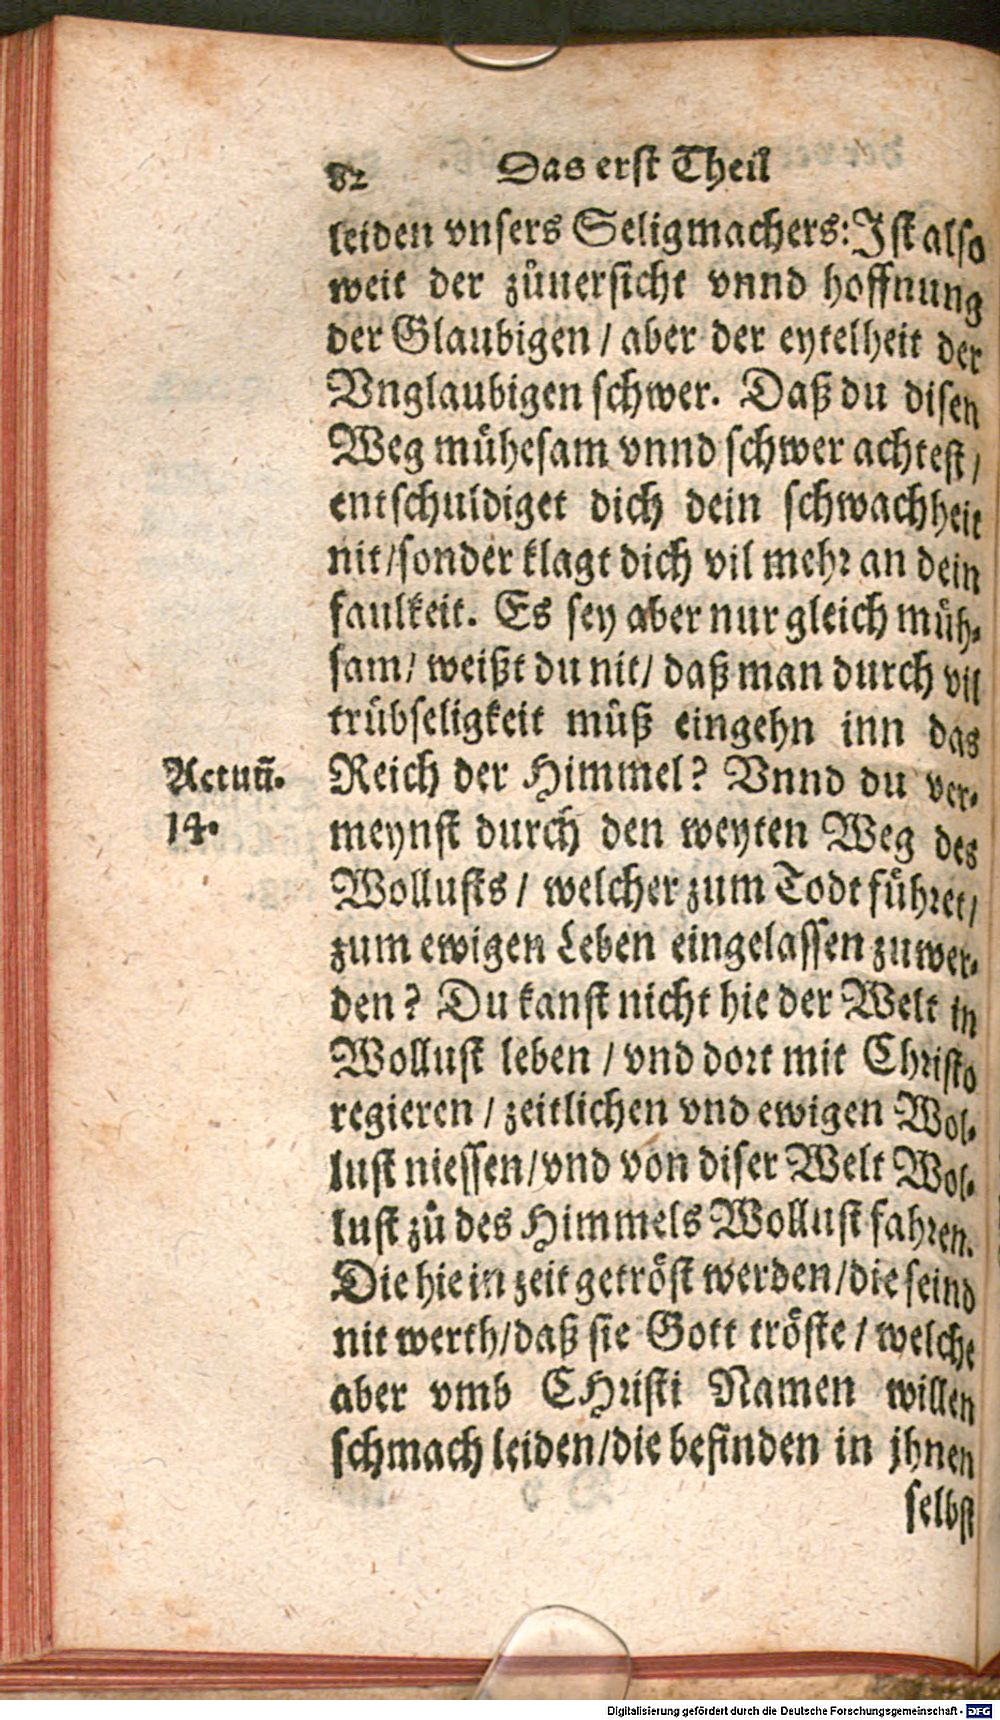 82 Das erst Theil
leiden vnsers Seligmachers: Ist also
weit der zůuersicht vnnd hoffnung
der Glaubigen / aber der eytelheit der
Vnglaubigen schwer. Daß du disen
Weg mühesam vnnd schwer achtest /
entschuldiget dich dein schwachheit
nit / sonder klagt dich vil mehr an dein
faulkeit. Es sey aber nur gleich müh-
sam / weißt du nit / daß man durch vil
trübseligkeit můß eingehn inn das
Actuū. Reich der Himmel? Vnnd du ver-
14. meynst durch den weyten Weg des
Wollusts / welcher zum Todt führet /
zum ewigen Leben eingelassen zuwer-
den? Du kanst nicht hie der Welt in
Wollust leben / vnd dort mit Christo
regieren / zeitlichen vnd ewigen Wol-
lust niessen / vnd von diser Welt Wol-
lust zů des Himmels Wollust fahren.
Die hie in zeit getröst werden / die seind
nit werth / daß sie Gott tröste / welche
aber vmb CHristi Namen willen
schmach leiden / die befinden in jhnen
selbst
Digitalisierung gefördert durch die Deutsche Forschungsgemeinschaft - DFG